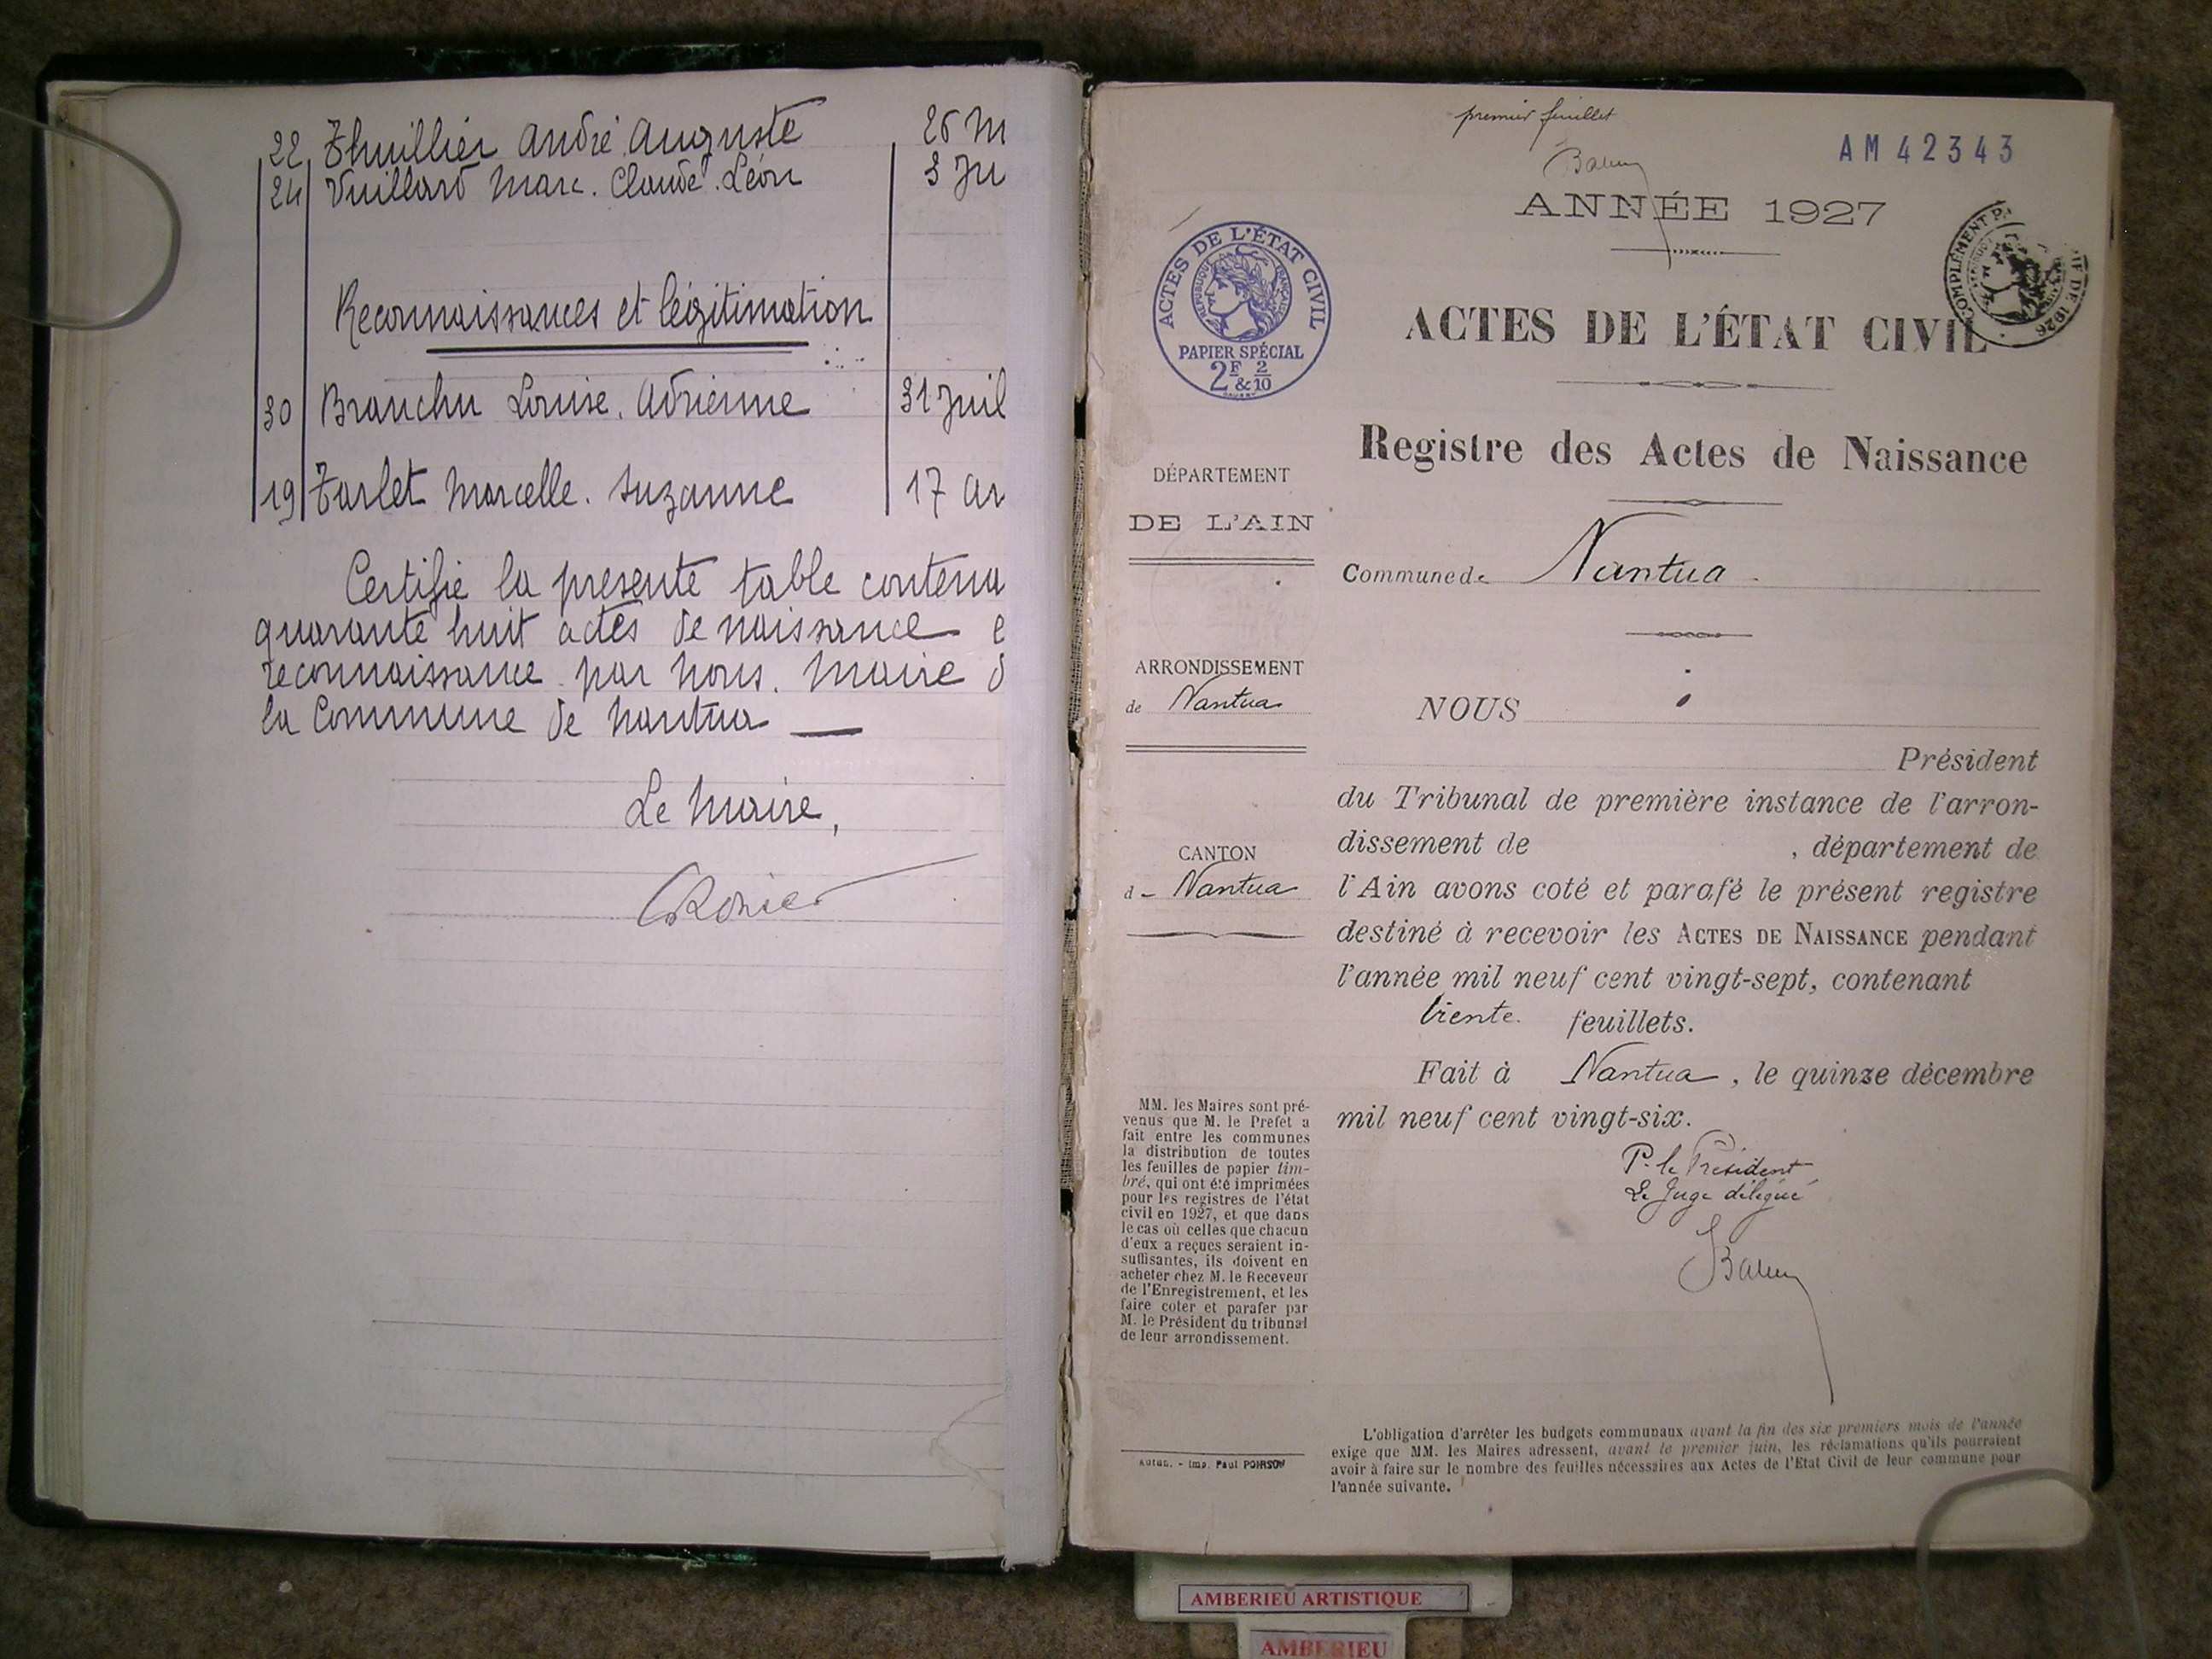 22 Thuillier André Auguste 26 M
24 Vuillard Marc. Claude. Léon 3 Ju
Reconnaissances et légitimation
30 Branchu Louise. Adrienne 31 Juil
19 Tarlet Marcelle. Suzanne 17 a
Certifie la presente table contena
quarante huit actes de naissance e
reconnaissance par nous. Maire d
la Commune de Nantua
Le Maire,
premier feuillet
AM 42343
ANNÉE 1927
ACTES DE L'ÉTAT CIVIL
RÉPUBLIQUE FRANÇAISE
PAPIER SPÉCIAL
2F & 2/10
COMPLÉMENT
DE 1926
ACTES DE L'ÉTAT CIVIL
Registre des Actes de Naissance
DÉPARTEMENT
DE L'AIN
Commune de Nantua
ARRONDISSEMENT
de Nantua
CANTON
d- Nantua
NOUS
Président
du Tribunal de première instance de l'arron-
dissement de , département de
l'Ain avons coté et parafé le présent registre
destiné à recevoir les ACTES DE NAISSANCE pendant
l'année mil neuf cent vingt-sept, contenant
trente. feuillets.
Fait à Nantua, le quinze décembre
mil neuf cent vingt-six.
P. le Président
Le Juge délégué
MM. les Maires sont pré-
venus que M. le Préfet a
fait entre les communes
la distribution de toutes
les feuilles de papier tim-
bré, qui ont été imprimées
pour les registres de l'état
civil en 1927, et que dans
le cas où celles que chacun
d'eux a reçues seraient in-
suffisantes, ils doivent en
acheter chez M. le Receveur
de l'Enregistrement, et les
faire coter et parafer par
M. le Président du tribunal
de leur arrondissement.
Autun. - Imp. Paul POIRSON
L'obligation d'arrêter les budgets communaux avant la fin des six premiers mois de l'année
exige que MM. les Maires adressent, avant le premier juin, les réclamations qu'ils pourraient
avoir à faire sur le nombre des feuilles nécessaires aux Actes de l'Etat Civil de leur commune pour
l'année suivante.
AMBERIEU ARTISTIQUE
AMBERIEU